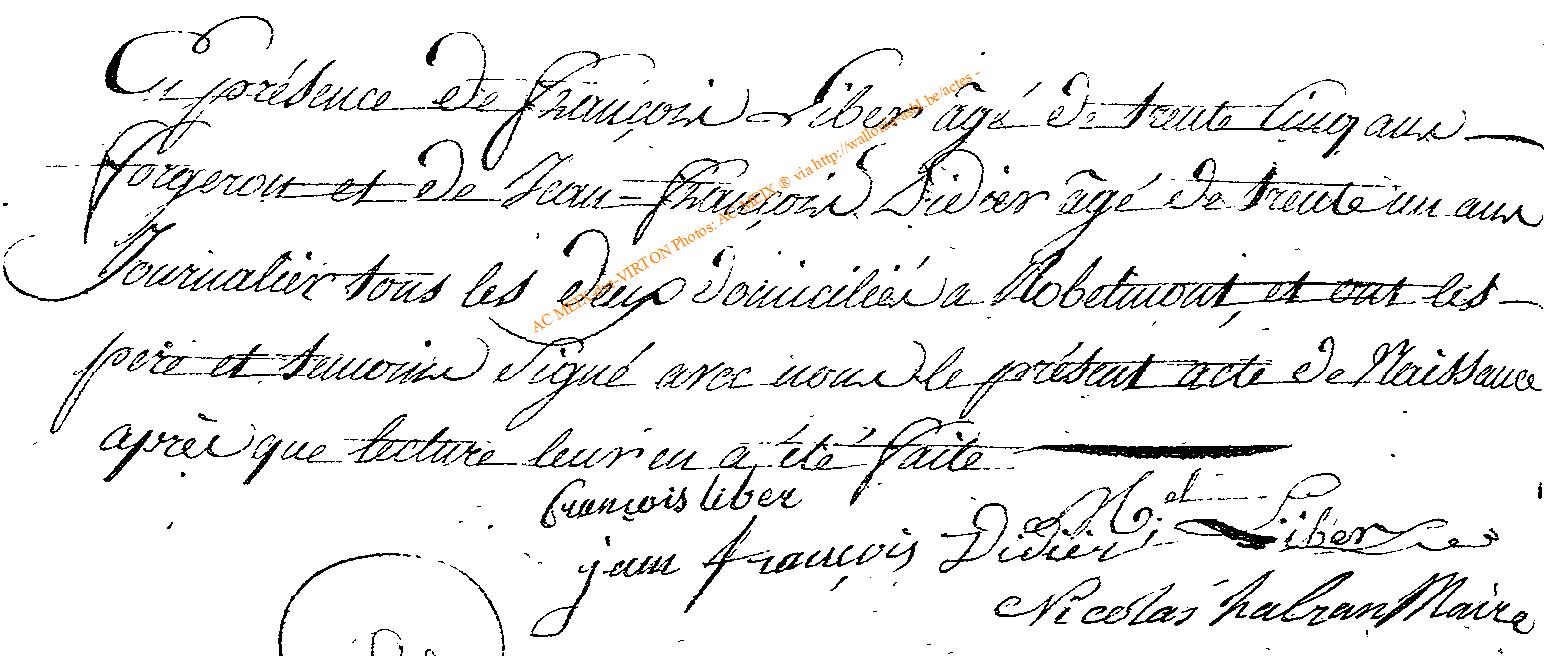 En présence de François Liber âgé de trente cinq ans
forgeron et de Jean-François Didier âgé de trente un ans
Journalier tous les deux domiciliés a Robelmont, et ont les
père et temoins signé avec nous le présent acte de Naissance
après que lecture leur en a été faite
françois liber
jean françois Didier Mel Liber
Nicolas Maire
AC METX via http://wallonie
Photos: AC METX ® be/actes -